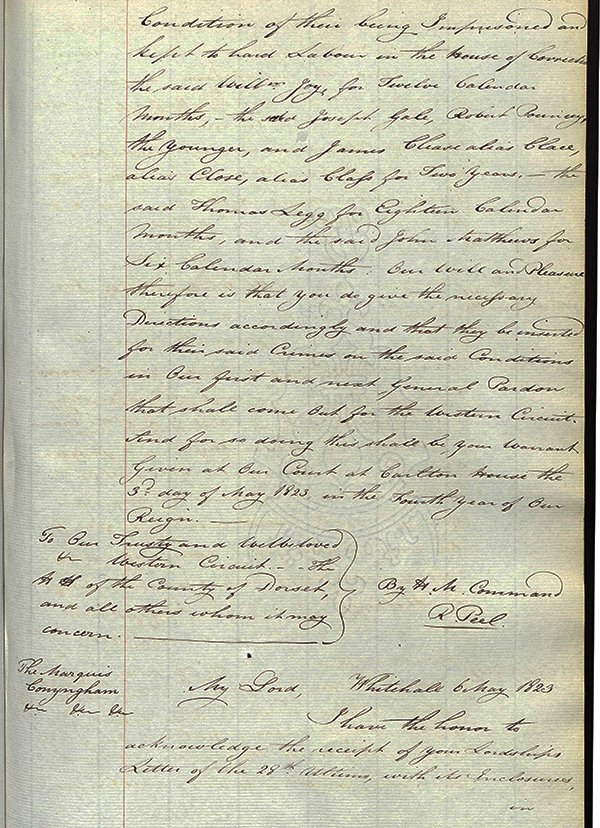 Condition of their being Imprisoned and
kept to hard Labour in the House of Correction
the said Willm Joy, for Twelve Calendar
Months, – the said Joseph Gale, Robert Pouncey,
the Younger, and James Clease alias Clace,
alias Close, alias Class for Two Years. – the
said Thomas Legg for Eighteen Calendar
Months, and the said John Matthews for
Six Calendar Months: Our Will and Pleasure
therefore is that you do give the necessary
Directions accordingly and that they be inserted
for their said Crimes on the said Conditions
in Our first and next General Pardon
that shall come Out for the Western Circuit.
And for so doing this shall be your Warrant
Given at Our Court at Carlton House the
3d day of May 1823, in the Fourth Year of Our
Reign. —
To Our Trusty and Welbeloved
&c Western Circuit. – – The
H S of the County of Dorset,
and all others whom it may
concern.
By H. M. Command
R Peel.
The Marquis
Conyngham
&c &c &c
My Lord, Whitehall 6 May 1823
I have the honor to
acknowledge the receipt of your Lordships
Letter of the 28th Ultimo, with its Enclosures,